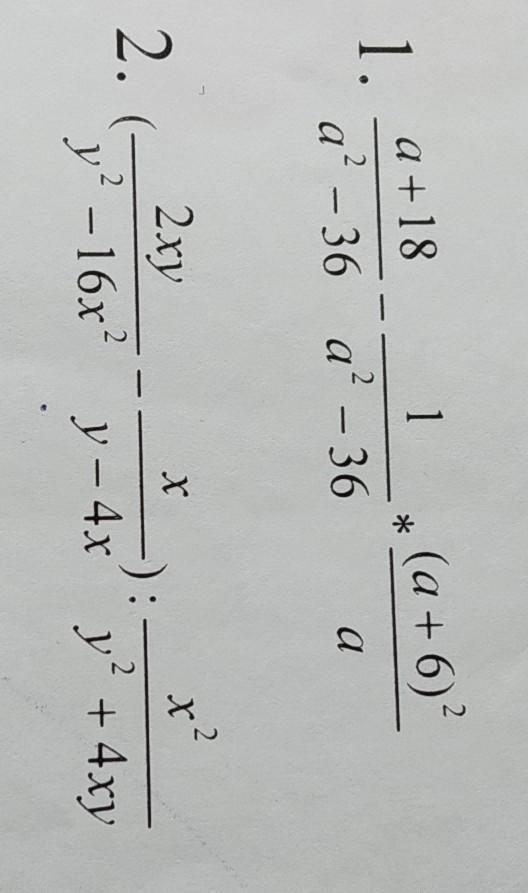 1. \frac{a+18}{a^2-36} - \frac{1}{a^2-36} * \frac{(a+6)^2}{a}
2. (\frac{2xy}{y^2-16x^2} - \frac{x}{y-4x}) : \frac{x^2}{y^2+4xy}